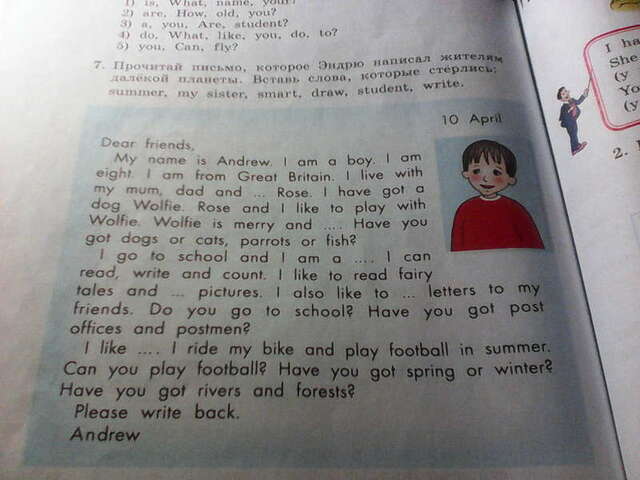 1) is, What, name, your?
2) are, How, old, you?
3) a, you, Are, student?
4) do, What, like, you, do, to?
5) you, Can, fly?
7. Прочитай письмо, которое Эндрю написал жителям
далёкой планеты. Вставь слова, которые стёрлись:
summer, my sister, smart, draw, student, write.
10 April
Dear friends,
My name is Andrew. I am a boy. I am
eight. I am from Great Britain. I live with
my mum, dad and ... Rose. I have got a
dog Wolfie. Rose and I like to play with
Wolfie. Wolfie is merry and .... Have you
got dogs or cats, parrots or fish?
I go to school and I am a .... I can
read, write and count. I like to read fairy
tales and ... pictures. I also like to ... letters to my
friends. Do you go to school? Have you got post
offices and postmen?
I like .... I ride my bike and play football in summer.
Can you play football? Have you got spring or winter?
Have you got rivers and forests?
Please write back.
Andrew
I ha
She
(y
Yo
(y
2.